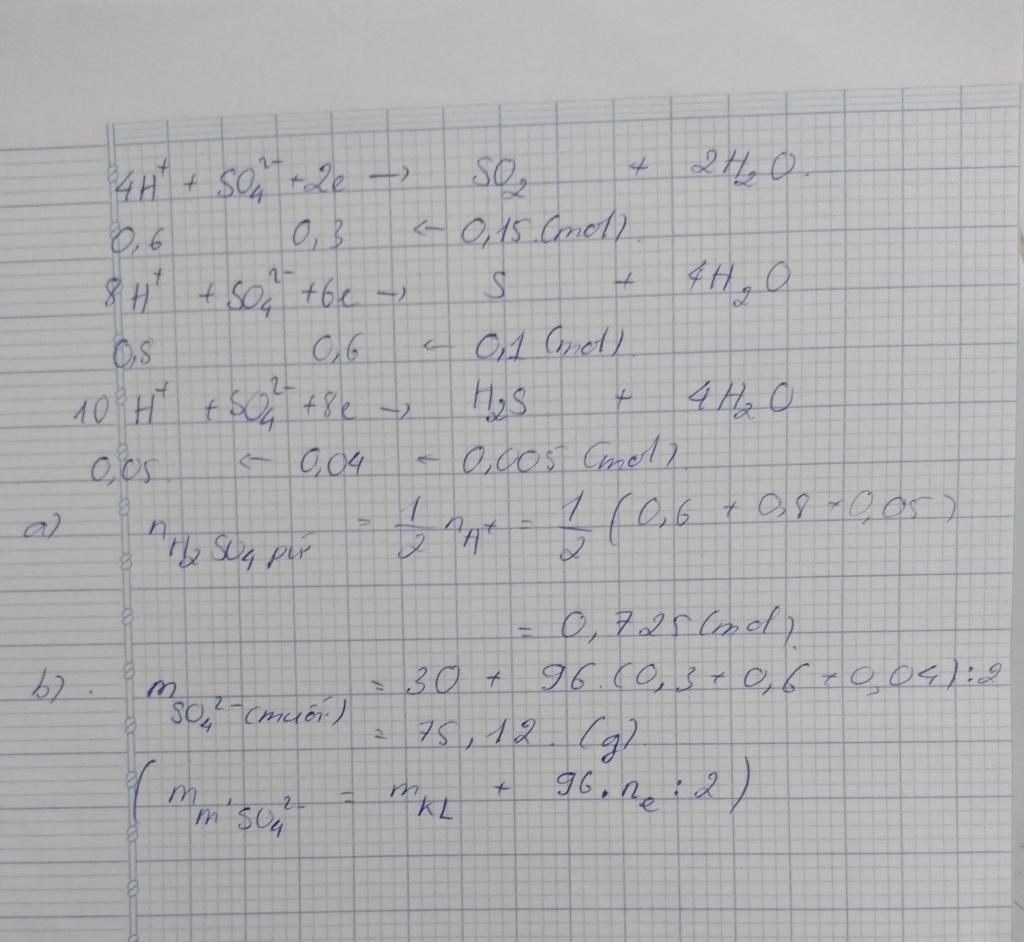 4H⁺ + SO₄²⁻ + 2e → SO₂ + 2H₂O.
0,6 0,3 ← 0,15 (mol)
8H⁺ + SO₄²⁻ + 6e → S + 4H₂O
0,8 0,6 ← 0,1 (mol)
10H⁺ + SO₄²⁻ + 8e → H₂S + 4H₂O
0,05 ← 0,04 ← 0,005 (mol)
a) n H₂SO₄ pư = 1/2 n H⁺ = 1/2 (0,6 + 0,8 + 0,05)
= 0,725 (mol)
b). m SO₄²⁻ (muối) = 30 + 96.(0,3 + 0,6 + 0,04):2
= 75,12. (g)
(m m' SO₄²⁻ = m KL + 96.nₑ : 2)